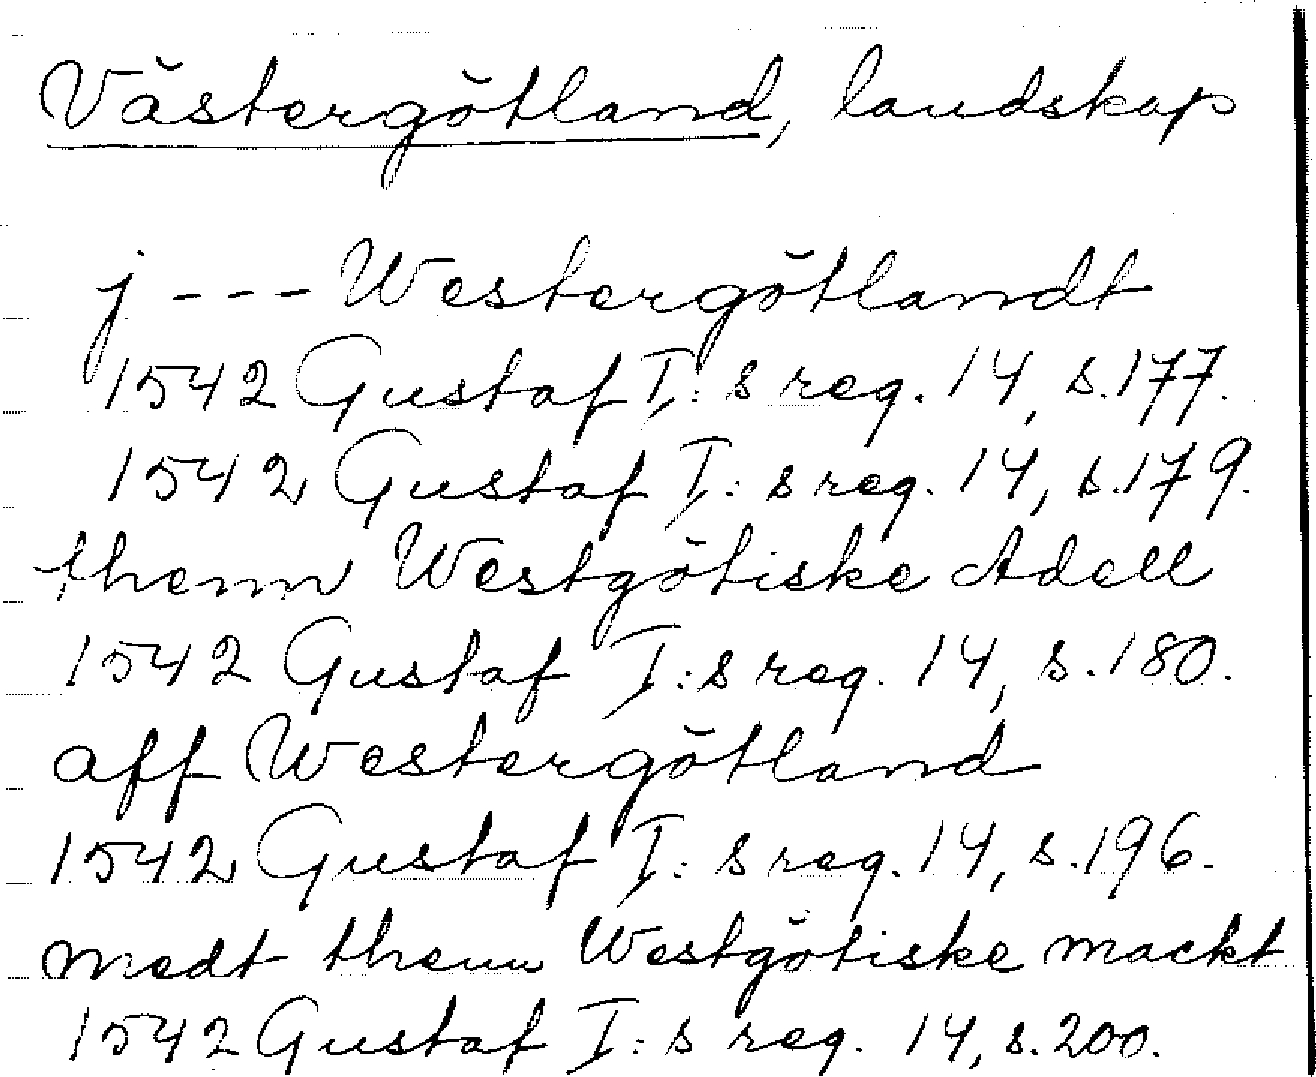 Västergötland, landskap
j --- Westergötlandt
1542 Gustaf I:s reg. 14, s.177.
1542 Gustaf I:s reg. 14, s.179.
thenn Westgötiske Adell
1542 Gustaf I:s reg. 14, s.180.
aff Westergötland
1542 Gustaf I:s reg. 14, s.196.
medt thenn Westgötiske mackt
1542 Gustaf I:s reg. 14, s.200.